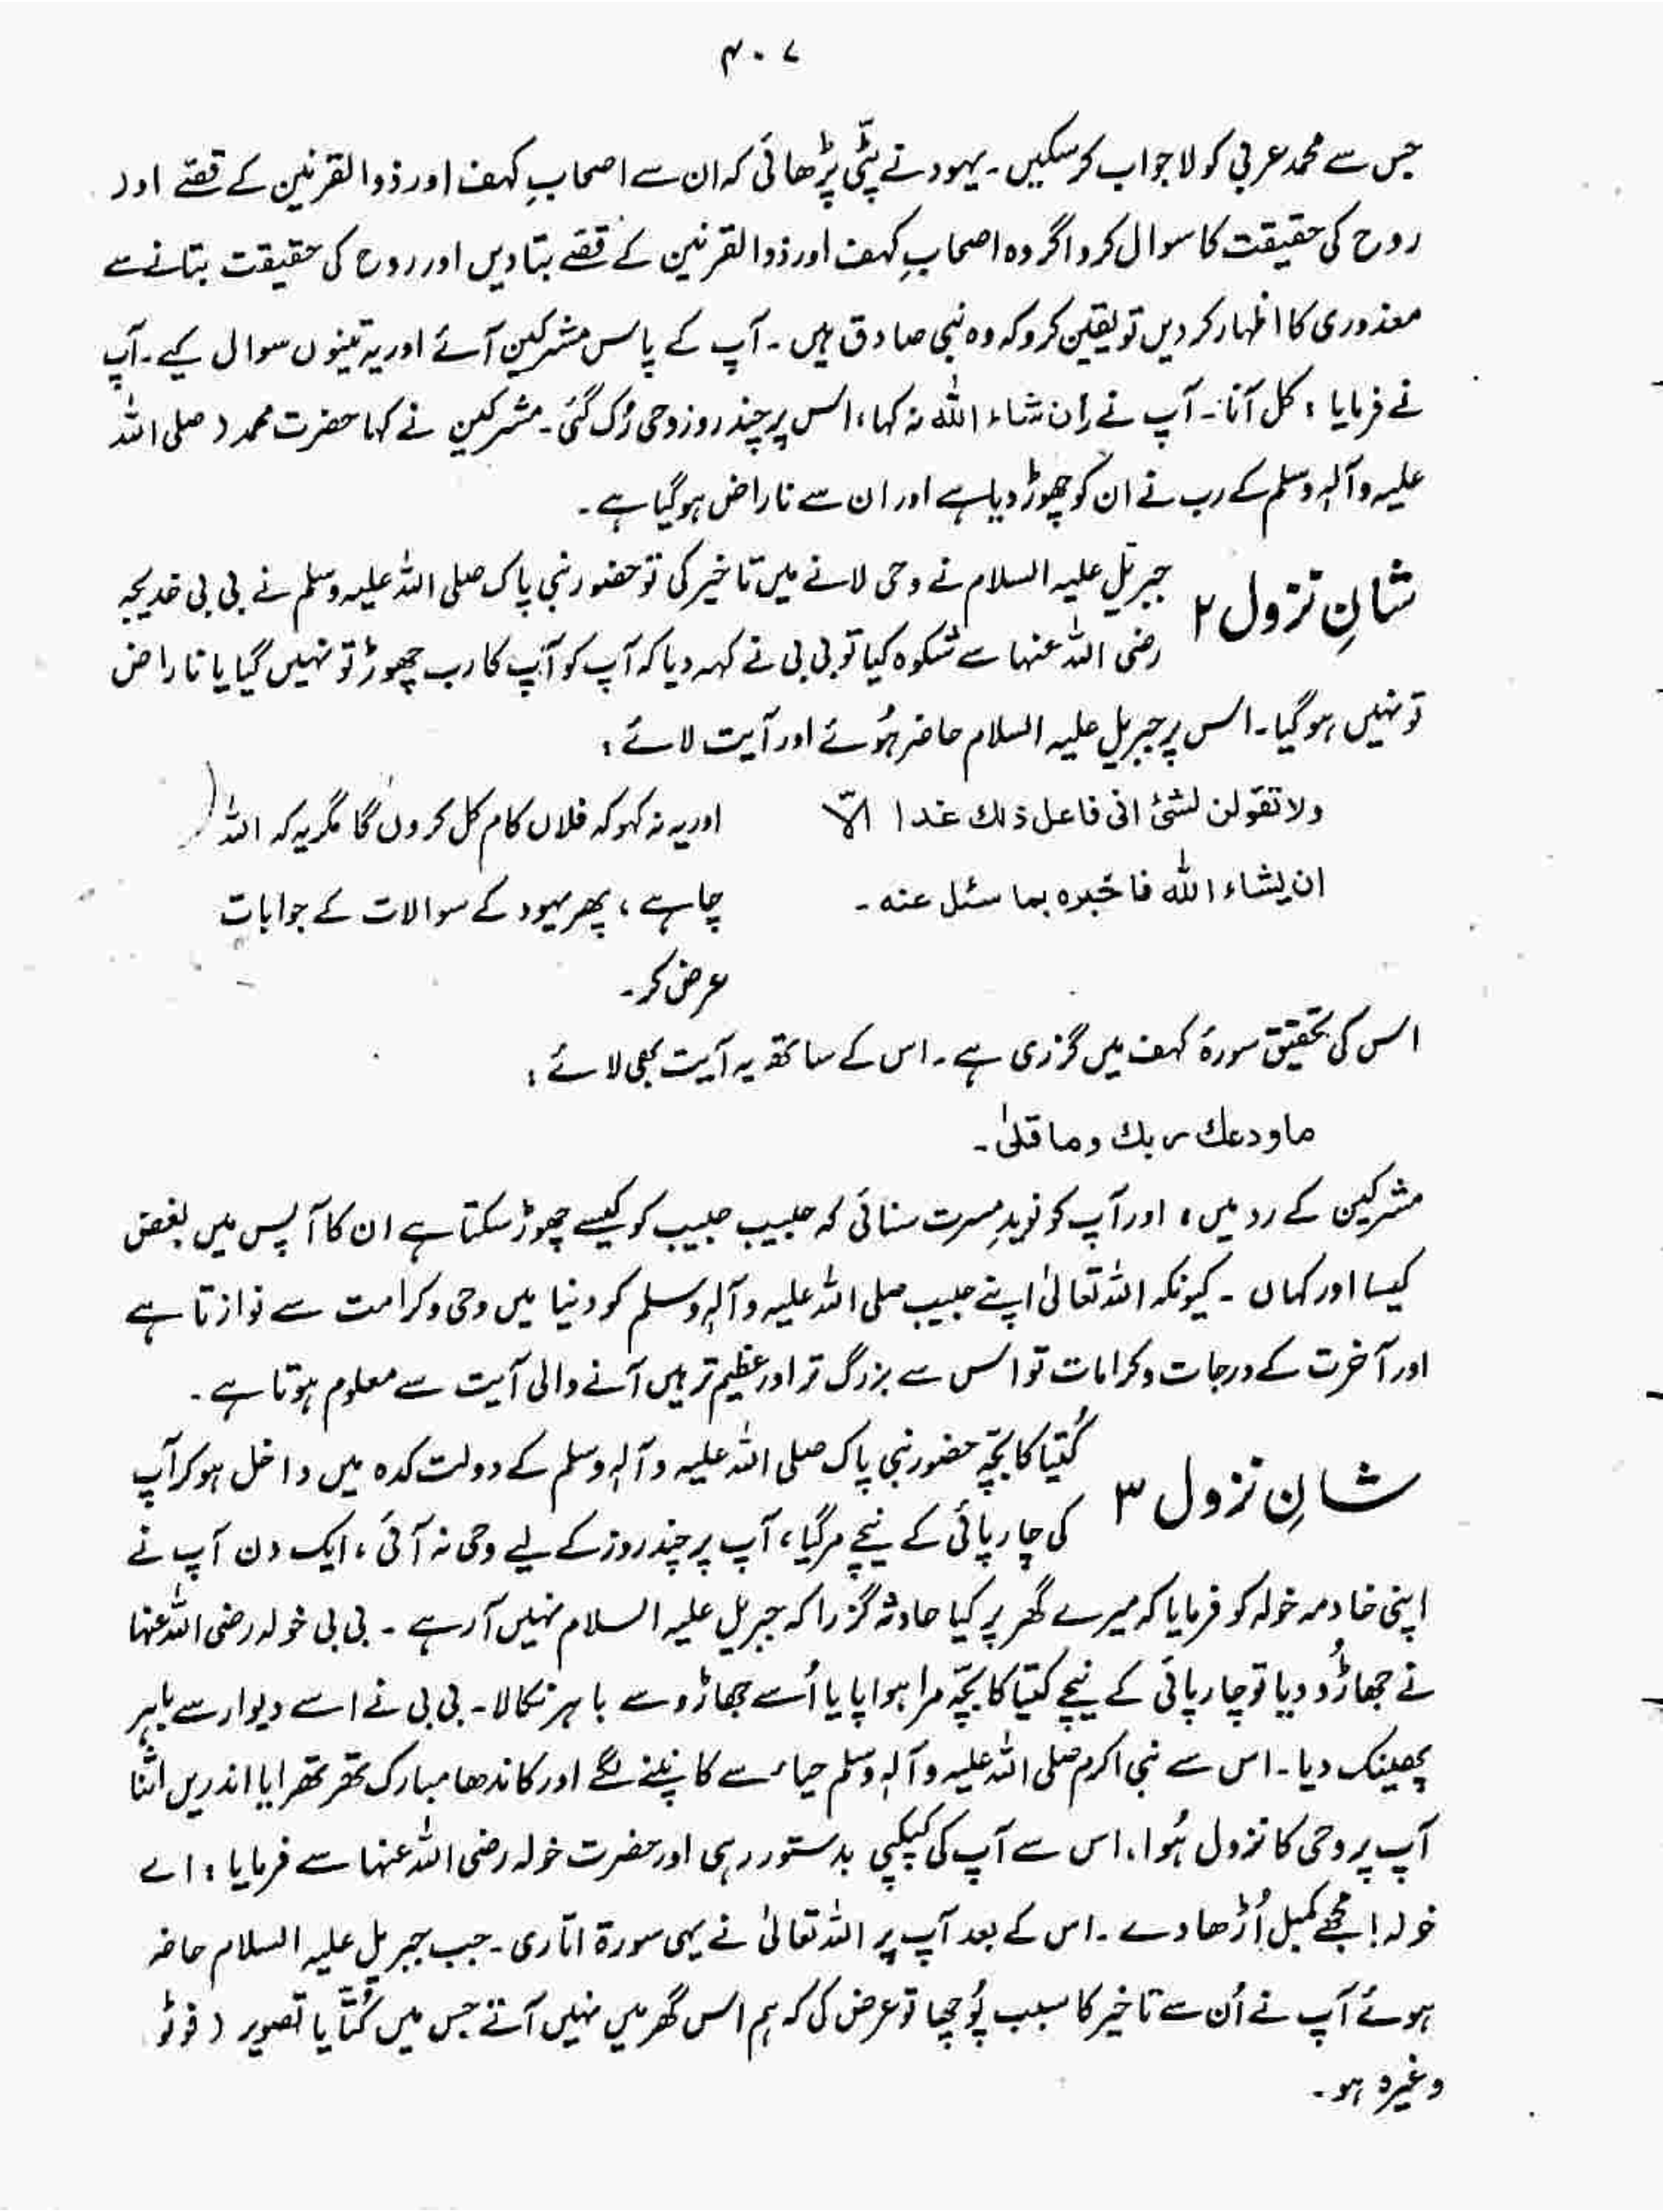 ۴۰۷
جس سے محمد عربی کو لاجواب کرسکیں۔ یہود نے پٹّی پڑھائی کہ ان سے اصحابِ کہف اور ذوالقرنین کے قصّے اور
روح کی حقیقت کا سوال کرو اگر وہ اصحابِ کہف اور ذوالقرنین کے قصّے بتا دیں اور روح کی حقیقت بتانے سے
معذوری کا اظہار کر دیں تو یقین کرو کہ وہ نبی صادق ہیں۔ آپ کے پاس مشرکین آئے اور یہ تینوں سوال کیے۔ آپ
نے فرمایا : کل آنا۔ آپ نے اِن شاء اللہ نہ کہا، اس پر چند روز وحی رُک گئی۔ مشرکین نے کہا حضرت محمد (صلی اللہ
علیہ وآلہٖ وسلم کے رب نے ان کو چھوڑ دیا ہے اور ان سے ناراض ہوگیا ہے۔
شانِ نزول ۲ جبریل علیہ السلام نے وحی لانے میں تاخیر کی تو حضور نبی پاک صلی اللہ علیہ وسلم نے بی بی خدیجہ
رضی اللہ عنہا سے شکوہ کیا تو بی بی نے کہہ دیا کہ آپ کو آپ کا رب چھوڑ تو نہیں گیا یا ناراض
تو نہیں ہوگیا۔ اس پر جبریل علیہ السلام حاضر ہُوئے اور آیت لائے :
ولا تقولن لشئ انی فاعل ذٰلك غدا الّا
ان یشاء اللہ فاخبره بما سئل عنه۔
اور یہ نہ کہو کہ فلاں کام کل کروں گا مگر یہ کہ اللہ
چاہے، پھر یہود کے سوالات کے جوابات
عرض کر۔
اس کی تحقیق سورۂ کہف میں گزری ہے۔ اس کے ساتھ یہ آیت بھی لائے :
ما ودعك ربك وما قلیٰ۔
مشرکین کے رد میں، اور آپ کو نویدِ مسرت سنائی کہ حبیب حبیب کو کیسے چھوڑ سکتا ہے ان کا آپس میں بغض
کیسا اور کہاں ۔ کیونکہ اللہ تعالیٰ اپنے حبیب صلی اللہ علیہ وآلہٖ وسلم کو دنیا میں وحی و کرامت سے نوازتا ہے
اور آخرت کے درجات و کرامات تو اس سے بزرگ تر اور عظیم تر ہیں آنے والی آیت سے معلوم ہوتا ہے۔
شانِ نزول ۳ کُتیا کا بچّہ حضور نبی پاک صلی اللہ علیہ وآلہٖ وسلم کے دولت کدہ میں داخل ہو کر آپ
کی چارپائی کے نیچے مرگیا، آپ پر چند روز کے لیے وحی نہ آئی، ایک دن آپ نے
اپنی خادمہ خولہ کو فرمایا کہ میرے گھر پر کیا حادثہ گزرا کہ جبریل علیہ السلام نہیں آ رہے ۔ بی بی خولہ رضی اللہ عنہا
نے جھاڑُو دیا تو چارپائی کے نیچے کتیا کا بچّہ مرا ہوا پایا اُسے جھاڑو سے باہر نکالا۔ بی بی نے اسے دیوار سے باہر
پھینک دیا۔ اس سے نبی اکرم صلی اللہ علیہ وآلہٖ وسلم حیاء سے کانپنے لگے اور کاندھا مبارک تھرتھرایا اندریں اثنا
آپ پر وحی کا نزول ہُوا، اس سے آپ کی کپکپی بدستور رہی اور حضرت خولہ رضی اللہ عنہا سے فرمایا : اے
خولہ! مجھے کمبل اُڑھا دے۔ اس کے بعد آپ پر اللہ تعالیٰ نے یہی سورۃ اتاری۔ جب جبریل علیہ السلام حاضر
ہوئے آپ نے اُن سے تاخیر کا سبب پُوچھا تو عرض کی کہ ہم اس گھر میں نہیں آتے جس میں کُتّا یا تصویر (فوٹو
وغیرہ ہو۔